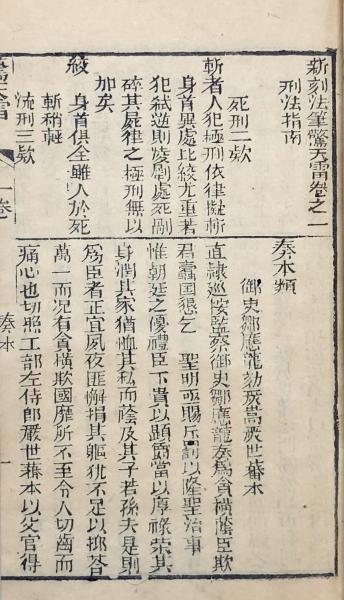 新刻法筆驚天雷卷之一
刑法指南
死刑二欵
斬者人犯極刑依律擬斬
身首異處比絞尤重若
犯弑逆則凌剮處死剮
碎其屍律之極刑無以
加矣
絞
身首俱全雖人於死
斬稍輕
流刑三欵
奏本類
御史鄒應龍劾嚴嵩嚴世蕃本
直隷巡按監察御史鄒應龍奏爲貪橫蔭臣欺
君蠹國懇乞 聖明亟賜斥罰以隆聖治事
惟朝廷之優禮臣下貴以顯爵當以厚祿榮其
身潤其家猶恤其私而蔭及其子若孫夫是則
爲臣者正宜夙夜匪懈捐其軀犹不足以揶荅
萬一而况有貪橫欺國靡所不至令人切齒而
痛心也切照工部左侍郎嚴世蕃本以父官得
一卷
奏本
一